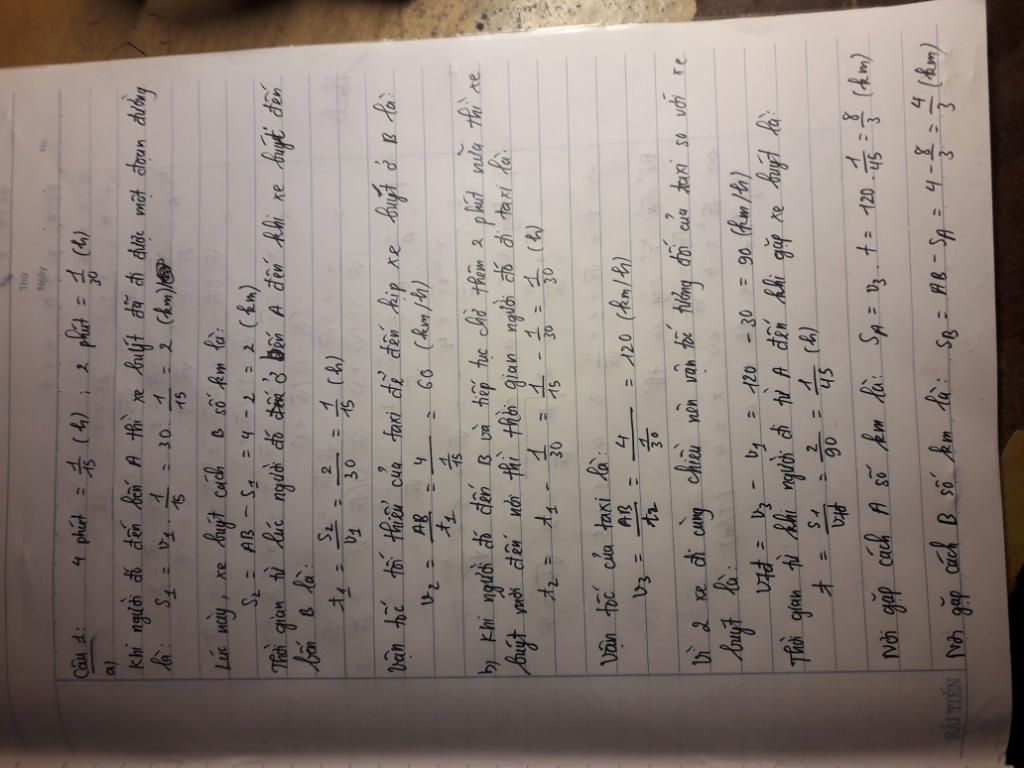 Thứ
Ngày
No
Câu 1: 4 phút = 1/15 (h) ; 2 phút = 1/30 (h)
a)
Khi người đó đến bến A thì xe buýt đã đi được một đoạn đường
là: S1 = v1 . 1/15 = 30 . 1/15 = 2 (km)
Lúc này, xe buýt cách B số km là:
S2 = AB - S1 = 4 - 2 = 2 (km)
Thời gian từ lúc người đó đến ở bến A đến khi xe buýt đến
bến B là:
t1 = S2/v1 = 2/30 = 1/15 (h)
Vận tốc tối thiểu của taxi để đến kịp xe buýt ở B là:
v2 = AB/t1 = 4/(1/15) = 60 (km/h)
b) Khi người đó đến B và tiếp tục chờ thêm 2 phút nữa thì xe
buýt mới đến nơi thì thời gian người đó đi taxi là:
t2 = t1 - 1/30 = 1/15 - 1/30 = 1/30 (h)
Vận tốc của taxi là:
v3 = AB/t2 = 4/(1/30) = 120 (km/h)
Vì 2 xe đi cùng chiều nên vận tốc tương đối của taxi so với xe
buýt là:
vtđ = v3 - v1 = 120 - 30 = 90 (km/h)
Thời gian từ khi người đi từ A đến khi gặp xe buýt là:
t = S1/vtđ = 2/90 = 1/45 (h)
Nơi gặp cách A số km là: SA = v3 . t = 120 . 1/45 = 8/3 (km)
Nơi gặp cách B số km là: SB = AB - SA = 4 - 8/3 = 4/3 (km)
HẢI TIẾN